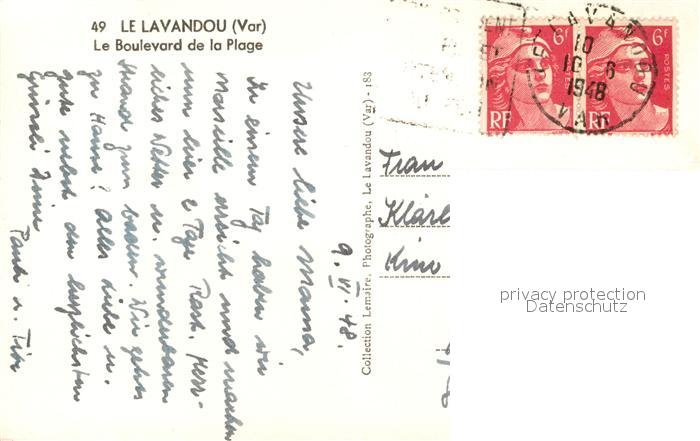 49 LE LAVANDOU (Var)
Le Boulevard de la Plage
9. VI. 48.
Unsere liebe Mama,
In einem Tag haben wir
Marseille erreicht und machen
nun hier 2 Tage Rast. Herr-
liches Wetter u. wunderbaren
Strand zum baden. Wie gehts
zu Hause? alles Liebe u.
gute nebst den herzlichsten
Collection Lemaire, Photographe, Le Lavandou (Var) - 183
Frau
Klärl
Kino
6F 6F
POSTES
RF RF
LE LAVANDOU
10
10 6
1948
VAR
privacy protection
Datenschutz